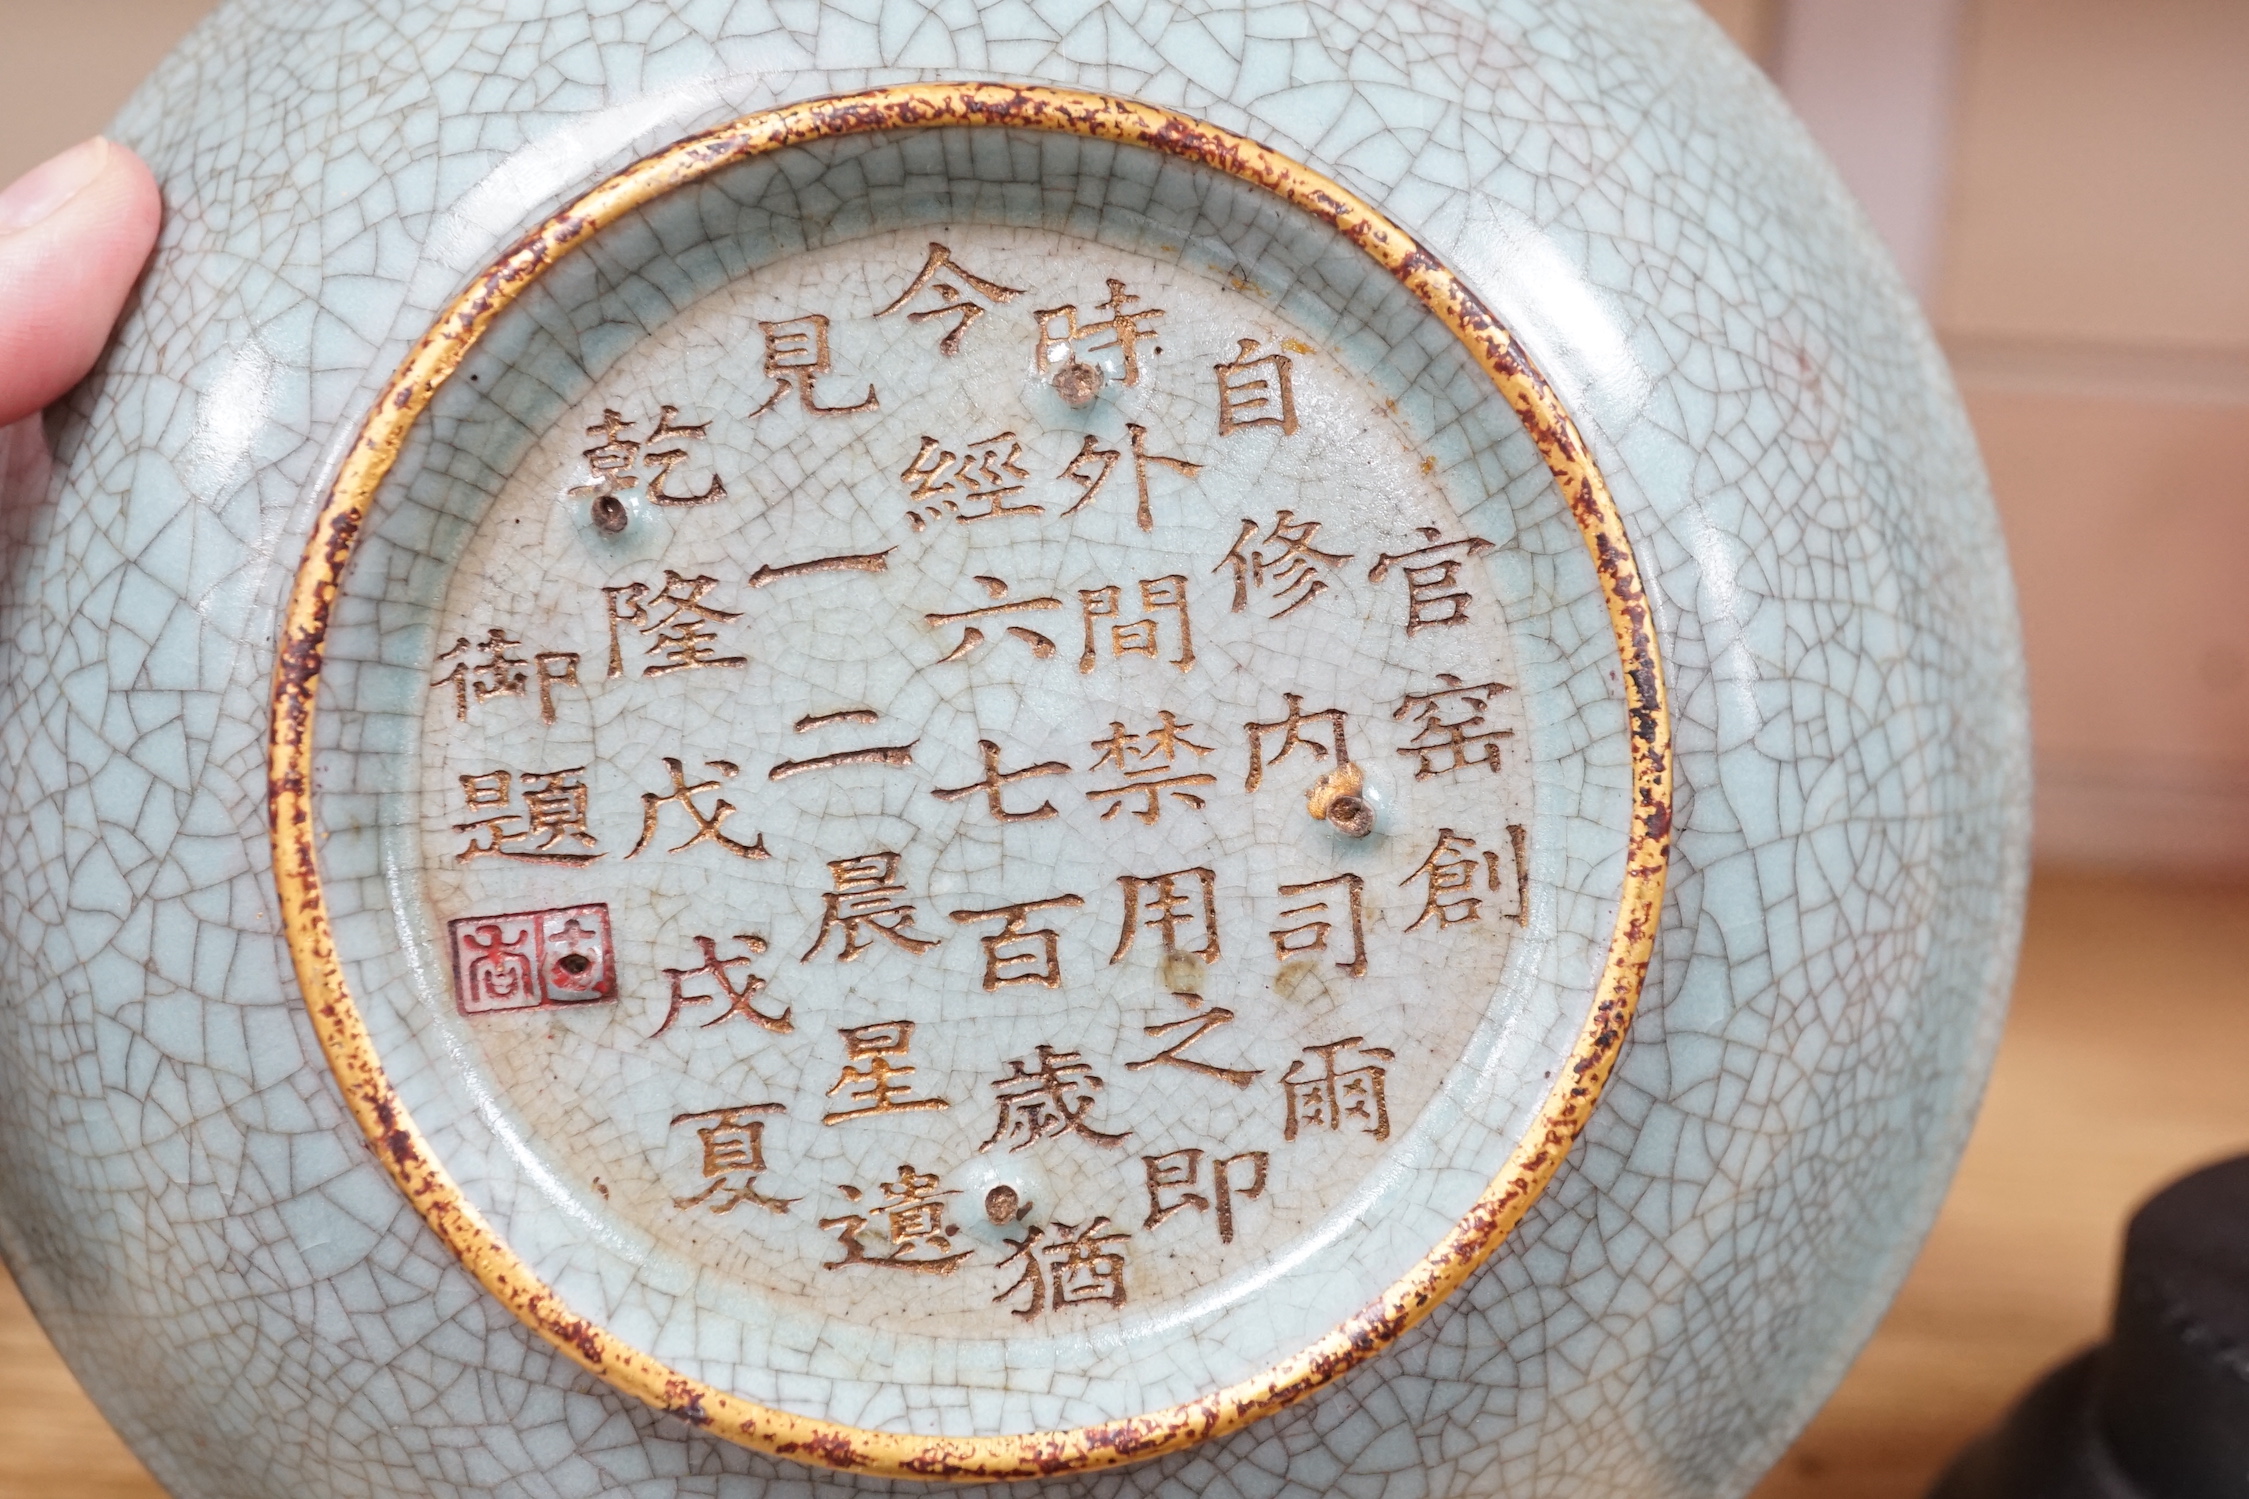 官窑創
自修内司爾
時外間禁用之即
今經六七百歲猶
見一二晨星遺
乾隆戊戌夏
御題
古香